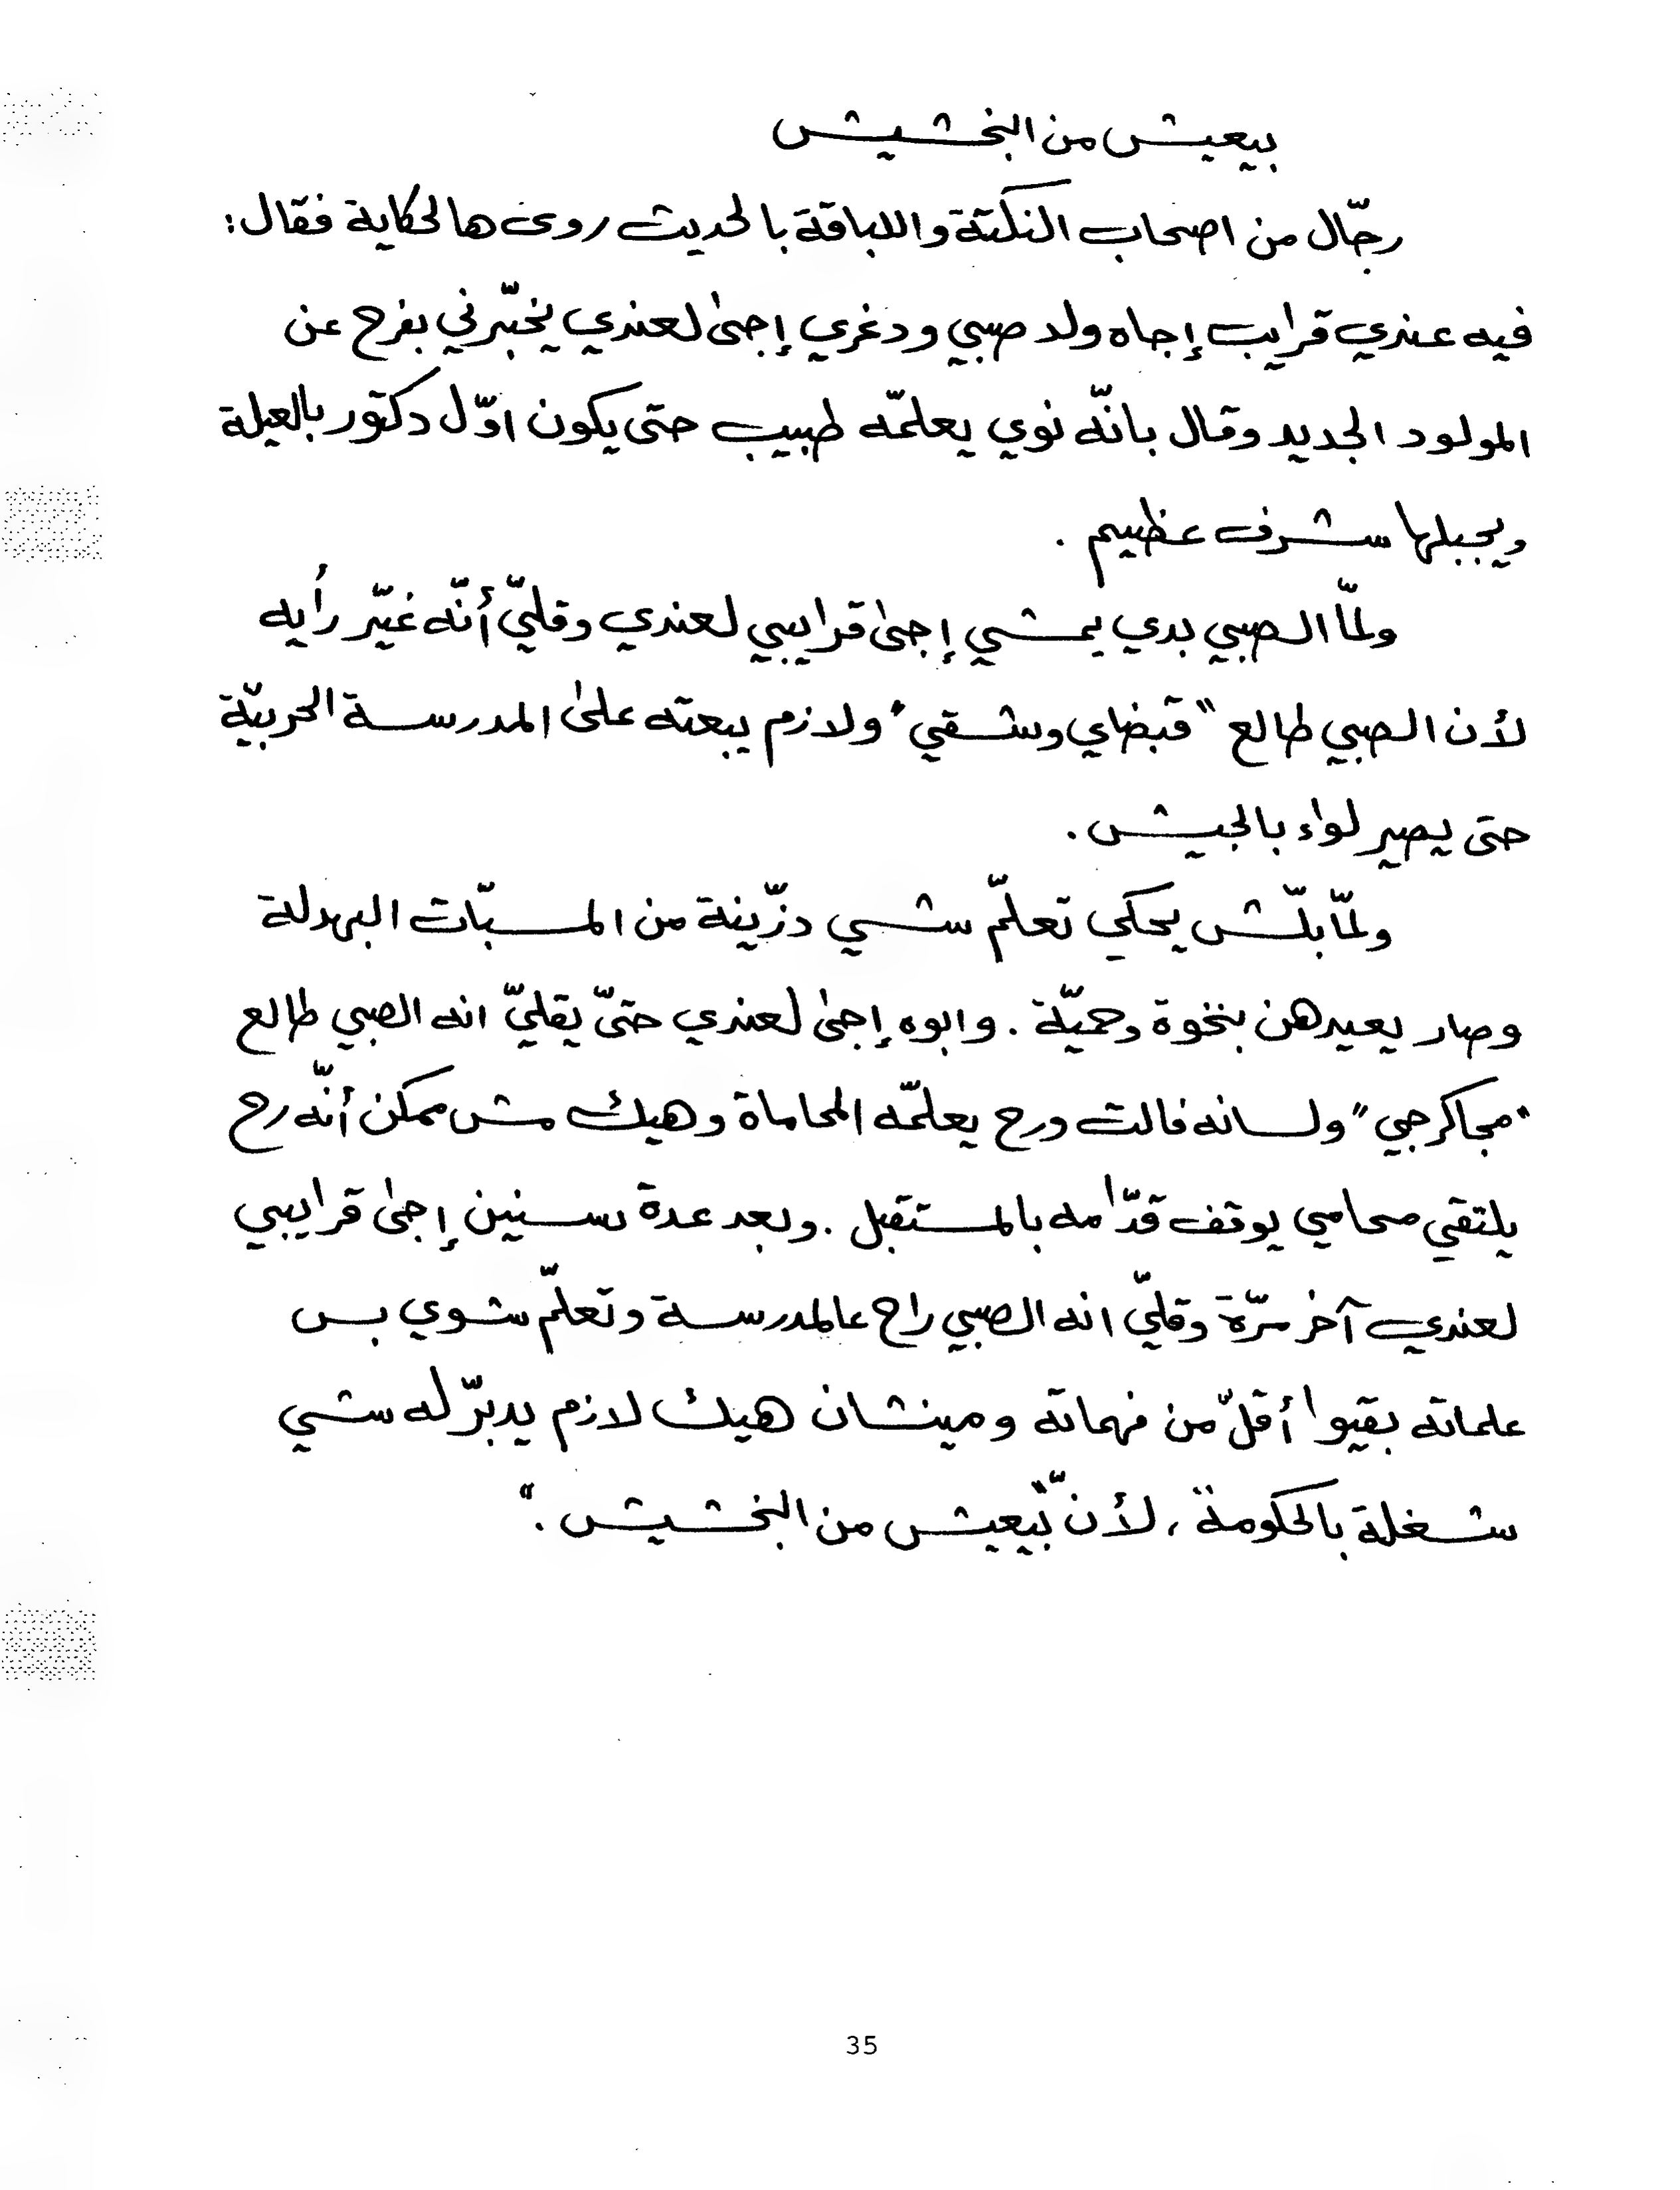 بيعيش من البخشيش
رجّال من اصحاب النكتة واللباقة بالحديث روى هالحكاية فقال:
فيه عندي قرايب إجاه ولد صبي ودغري إجىٰ لعندي يخبّرني بفرح عن
المولود الجديد وقال بانّه نوي يعلمّه طبيب حتى يكون اوّل دكتور بالعيلة
ويجبلها شرف عظيم .
ولمّا الصبي بدي يمشي إجىٰ قرايبي لعندي وقليّ أنّه غيّر رأيه
لأن الصبي طالع "قبضاي وشقي" ولازم يبعته علىٰ المدرسة الحربيّة
حتى يصير لواء بالجيش .
ولمّا بلّش يحكي تعلّم شي دزّينة من المسبّات البهدلة
وصار يعيدهن بنخوة وحميّة . وابوه إجىٰ لعندي حتىّ يقليّ انه الصبي طالع
"مجاكرجي" ولسانه فالت ورح يعلمّه المحاماة وهيك مش ممكن أنّه رح
يلتقي محامي يوقف قدّامه بالمستقبل . وبعد عدة سنين إجىٰ قرايبي
لعندي آخر مرّة وقليّ انه الصبي راح عالمدرسة وتعلّم شوي بس
علماته بقيوا أقلّ من فهماته ومينشان هيك لازم يدبرّ له شي
شغلة بالحكومة ، لأنّ "بيعيش من البخشيش ."
35